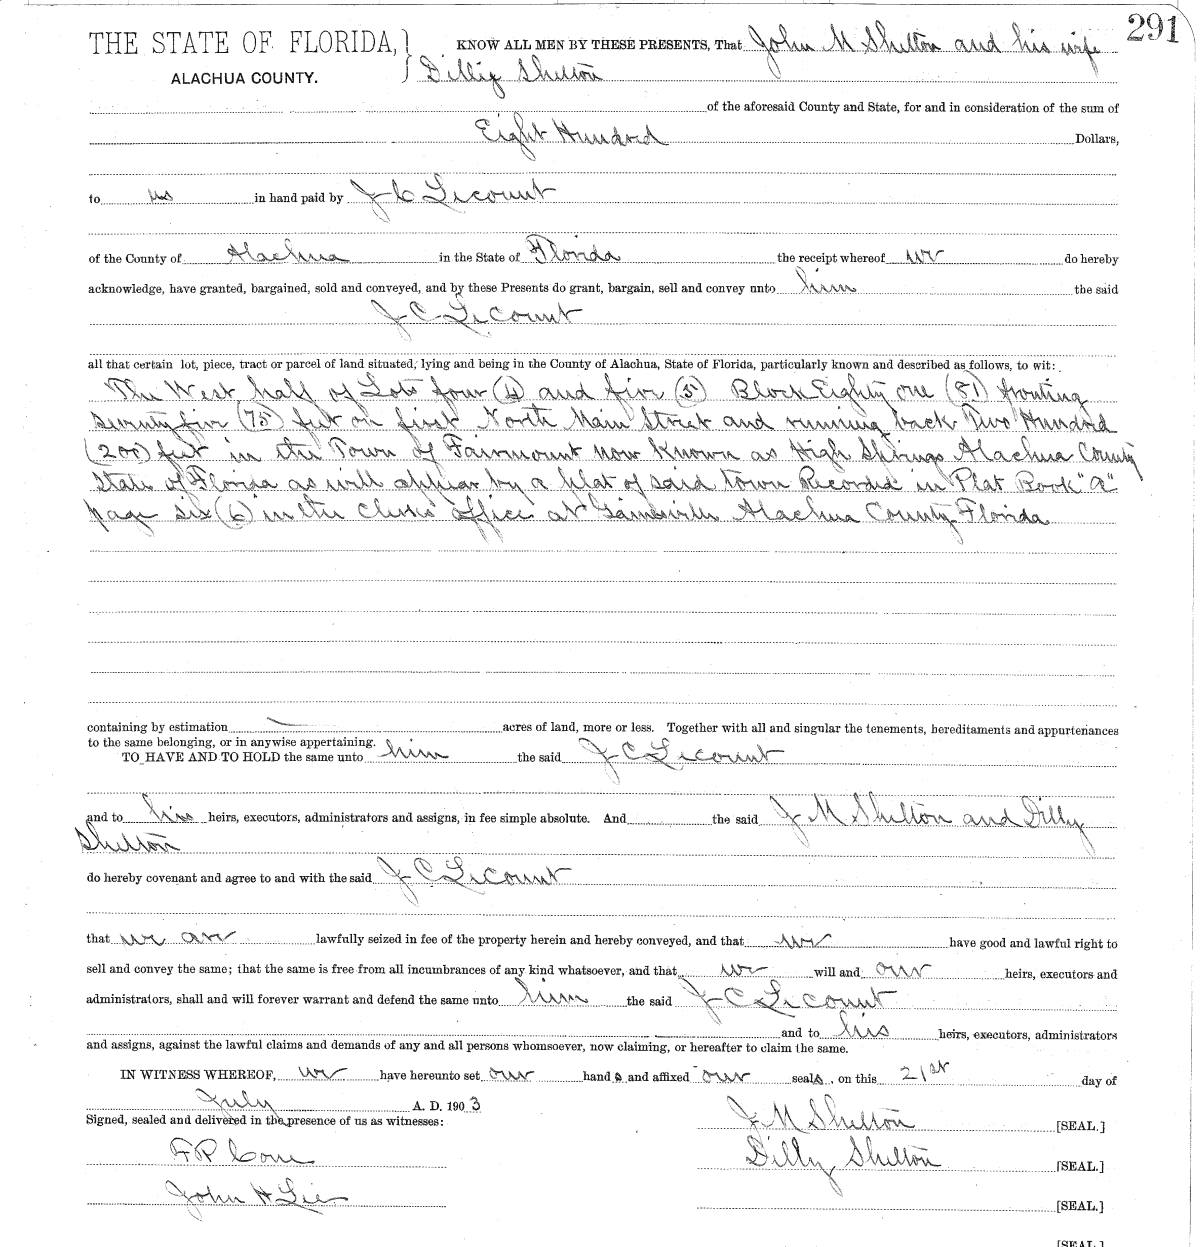 291
THE STATE OF FLORIDA, } KNOW ALL MEN BY THESE PRESENTS, That John M Shelton and his wife
ALACHUA COUNTY. Dilly Shelton
of the aforesaid County and State, for and in consideration of the sum of
Eight Hundred Dollars,
to us in hand paid by J C Lecount
of the County of Alachua in the State of Florida the receipt whereof we do hereby
acknowledge, have granted, bargained, sold and conveyed, and by these Presents do grant, bargain, sell and convey unto him the said
J C LeCount
all that certain lot, piece, tract or parcel of land situated, lying and being in the County of Alachua, State of Florida, particularly known and described as follows, to wit:
The West half of Lots four (4) and five (5) Block Eighty one (81) fronting
seventy five (75) feet on first North Main Street and running back Two Hundred
(200) feet in the Town of Fairmount now known as High Springs Alachua County
State of Florida as will appear by a plat of said town Recorded in Plat Book "A"
page six (6) in the Clerks office at Gainsville Alachua County Florida
containing by estimation acres of land, more or less. Together with all and singular the tenements, hereditaments and appurtenances
to the same belonging, or in anywise appertaining.
TO HAVE AND TO HOLD the same unto him the said J C Lecount
and to his heirs, executors, administrators and assigns, in fee simple absolute. And the said J M Shelton and Dilly
Shelton
do hereby covenant and agree to and with the said J C Lecount
that we are lawfully seized in fee of the property herein and hereby conveyed, and that we have good and lawful right to
sell and convey the same; that the same is free from all incumbrances of any kind whatsoever, and that we will and our heirs, executors and
administrators, shall and will forever warrant and defend the same unto him the said J C Lecount
and to his heirs, executors, administrators
and assigns, against the lawful claims and demands of any and all persons whomsoever, now claiming, or hereafter to claim the same.
IN WITNESS WHEREOF, we have hereunto set our hands and affixed our seals, on this 21st day of
July A. D. 1903
Signed, sealed and delivered in the presence of us as witnesses:
J M Shelton [SEAL.]
F R Cone
Dilly Shelton [SEAL.]
John H Lee
[SEAL.]
[SEAL.]